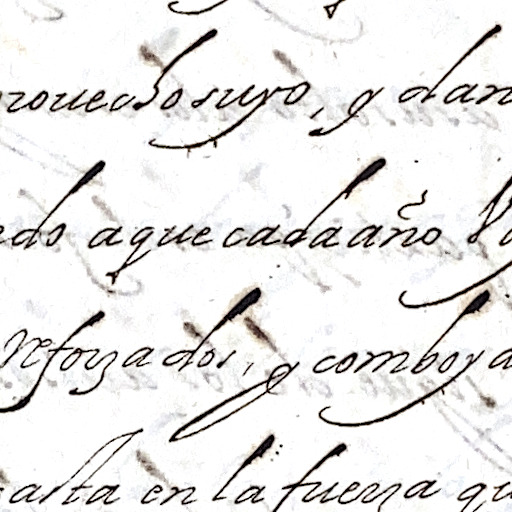 prouecho suyo, y dan
edo a que cada año
reforzados, y comboya
asta en la fuerza qu